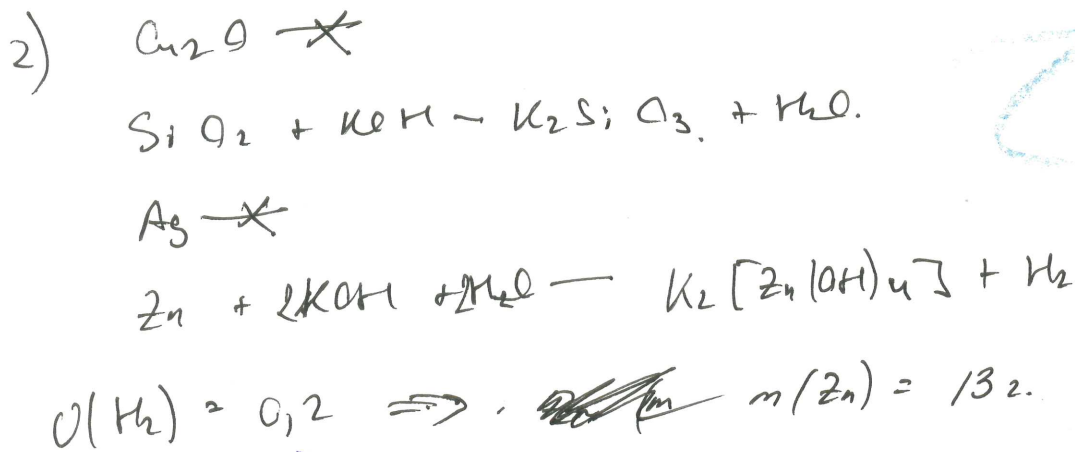 2) Cu2O ⇸
SiO2 + KOH - K2SiO3. + H2O.
Ag ⇸
Zn + 2KOH + 2H2O — K2[Zn(OH)4] + H2
υ(H2) = 0,2 ⇒ . m(Zn) = 13 г.